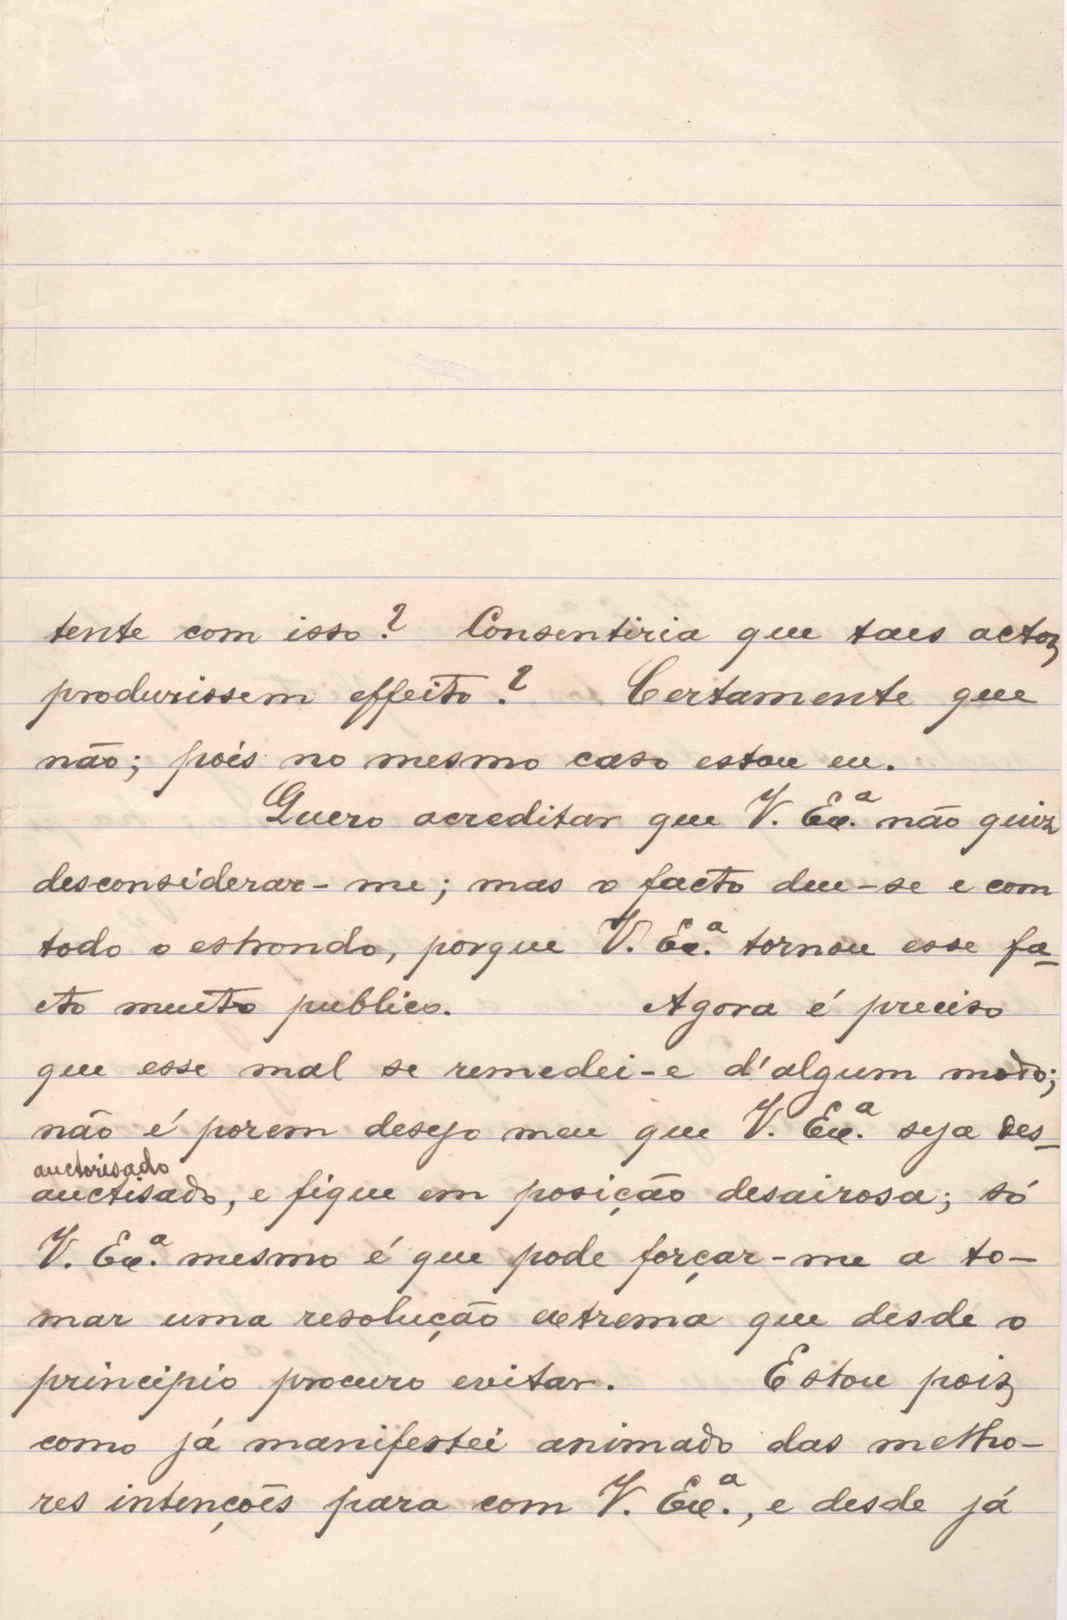 tente com isso? Consentiria que taes actos
produrissem effeito? Certamente que
não; pois no mesmo caso estou eu.
Quero acreditar que V. Ex.ª não quiz
desconsiderar-me; mas o facto deu-se e com
todo o estrondo, porque V. Ex.ª tornou esse fa-
cto muito publico. Agora é preciso
que esse mal se remedei-e d'algum modo;
não é porem desejo meu que V. Ex.ª seja des-
auctorisado
auctisado, e fique em posição desairosa; só
V. Ex.ª mesmo é que pode forçar-me a to-
mar uma resolução extrema que desde o
principio procuro evitar. Estou pois
como já manifestei animado das melho-
res intenções para com V. Ex.ª, e desde já